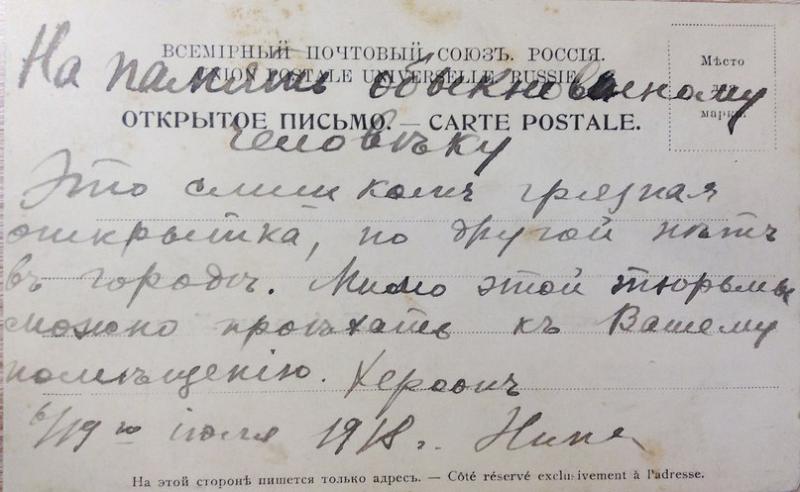 ВСЕМІРНЫЙ ПОЧТОВЫЙ СОЮЗЪ. РОССІЯ.
UNION POSTALE UNIVERSELLE. RUSSIE
Мѣсто
марки.
ОТКРЫТОЕ ПИСЬМО. — CARTE POSTALE.
На память обыкновенному
человѣку
Это слишкомъ грязная
открытка, но другой нѣтъ
въ городѣ. Мимо этой тюрьмы
можно проѣхать къ Вашему
помѣщенію. Херсонъ
6/19го іюля 1918 г. Нина
На этой сторонѣ пишется только адресъ. — Côté réservé exclusivement à l'adresse.